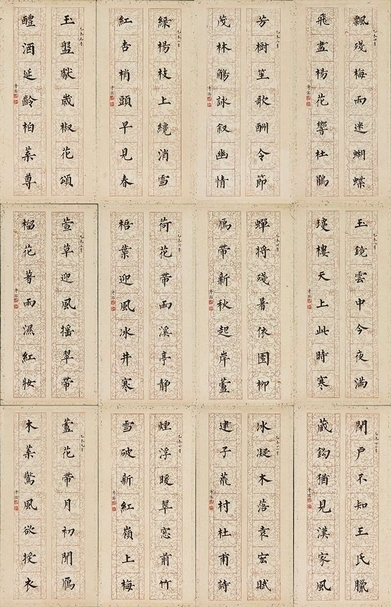 飄殘梅雨迷蝴蝶
飛盡楊花響杜鵑
芳樹笙歌酬令節
茂林觴詠叙幽情
綠楊枝上纔消雪
紅杏梢頭早見春
玉盤獻歲椒花頌
醴酒延齡柏葉尊
玉鏡雲中今夜滿
瓊樓天上此時寒
蟬將殘暑依園柳
鴈帶新秋起岸蘆
荷花帶雨溪亭靜
梧葉迎風冰井寒
萱草迎風搖翠帶
榴花著雨濕紅妝
閉戶不知王氏臘
藏鈎猶見漢家風
冰凝木落袁宏賦
建子荒村杜甫詩
煙浮暖翠窗前竹
雪破新紅嶺上梅
蘆花帶月初聞鴈
木葉驚風欲授衣